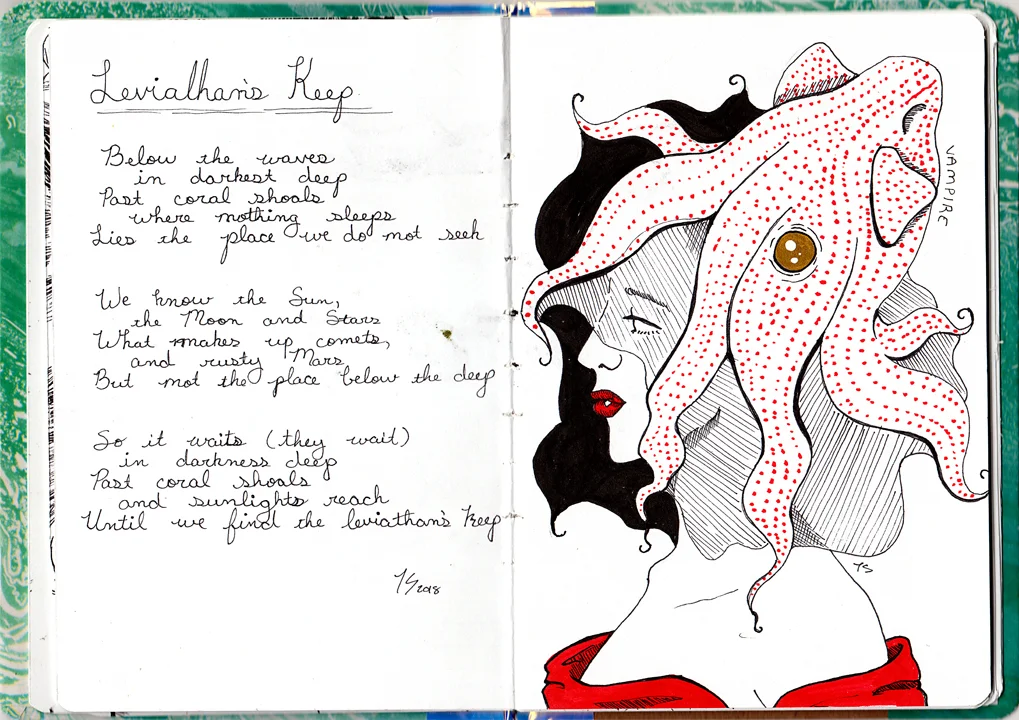 Leviathan's Keep
Below the waves
in darkest deep
Past coral shoals
where nothing sleeps
Lies the place we do not seek
We know the Sun,
the Moon and Stars
What makes up comets,
and rusty Mars
But not the place below the deep
So it waits (they wait)
in darkness deep
Past coral shoals
and sunlights reach
Until we find the leviathan's Keep
YS 2018
VAMPIRE
YS